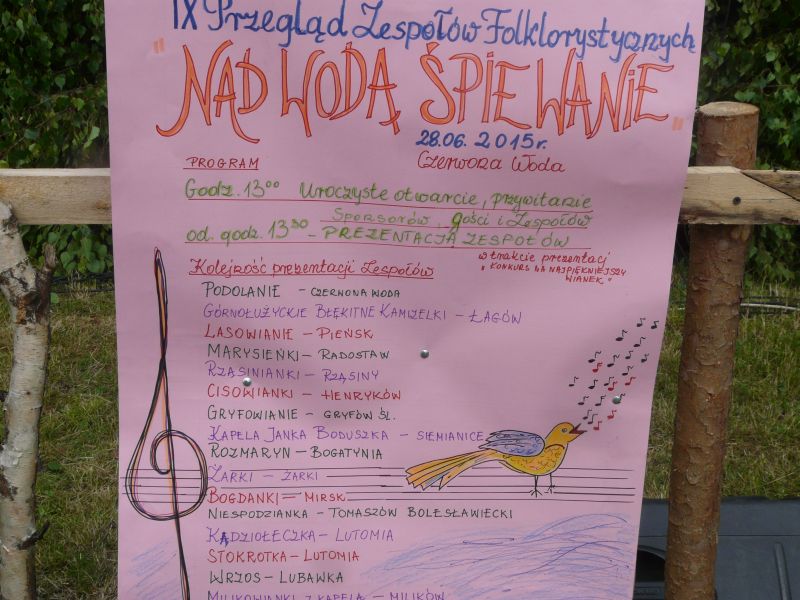 IX Przegląd Zespołów Folklorystycznych
"NAD WODĄ ŚPIEWANIE"
28.06.2015r.
Czerwona Woda
PROGRAM
Godz. 13⁰⁰ Uroczyste otwarcie, przywitanie
Sponsorów, gości i Zespołów
od godz. 13³⁰ - PREZENTACJA ZESPOŁÓW
w trakcie prezentacji
"KONKURS NA NAJPIĘKNIEJSZY
WIANEK."
Kolejność prezentacji Zespołów
PODOLANIE - CZERWONA WODA
GÓRNOŁUŻYCKIE BŁĘKITNE KAMIZELKI - ŁAGÓW
LASOWIANIE - PIEŃSK
MARYSIEŃKI - RADOSTAW
RZĄSINIANKI - RZĄSINY
CISOWIANKI - HENRYKÓW
GRYFOWIANIE - GRYFÓW ŚL.
KAPELA JANKA BODUSZKA - SIEMIANICE
ROZMARYN - BOGATYNIA
ŻARKI - ŻARKI
BOGDANKI - MIRSK
NIESPODZIANKA - TOMASZÓW BOLESŁAWIECKI
KĄDZIOŁECZKA - LUTOMIA
STOKROTKA - LUTOMIA
WRZOS - LUBAWKA
MILIKOWIANKI Z KAPELĄ - MILIKÓW